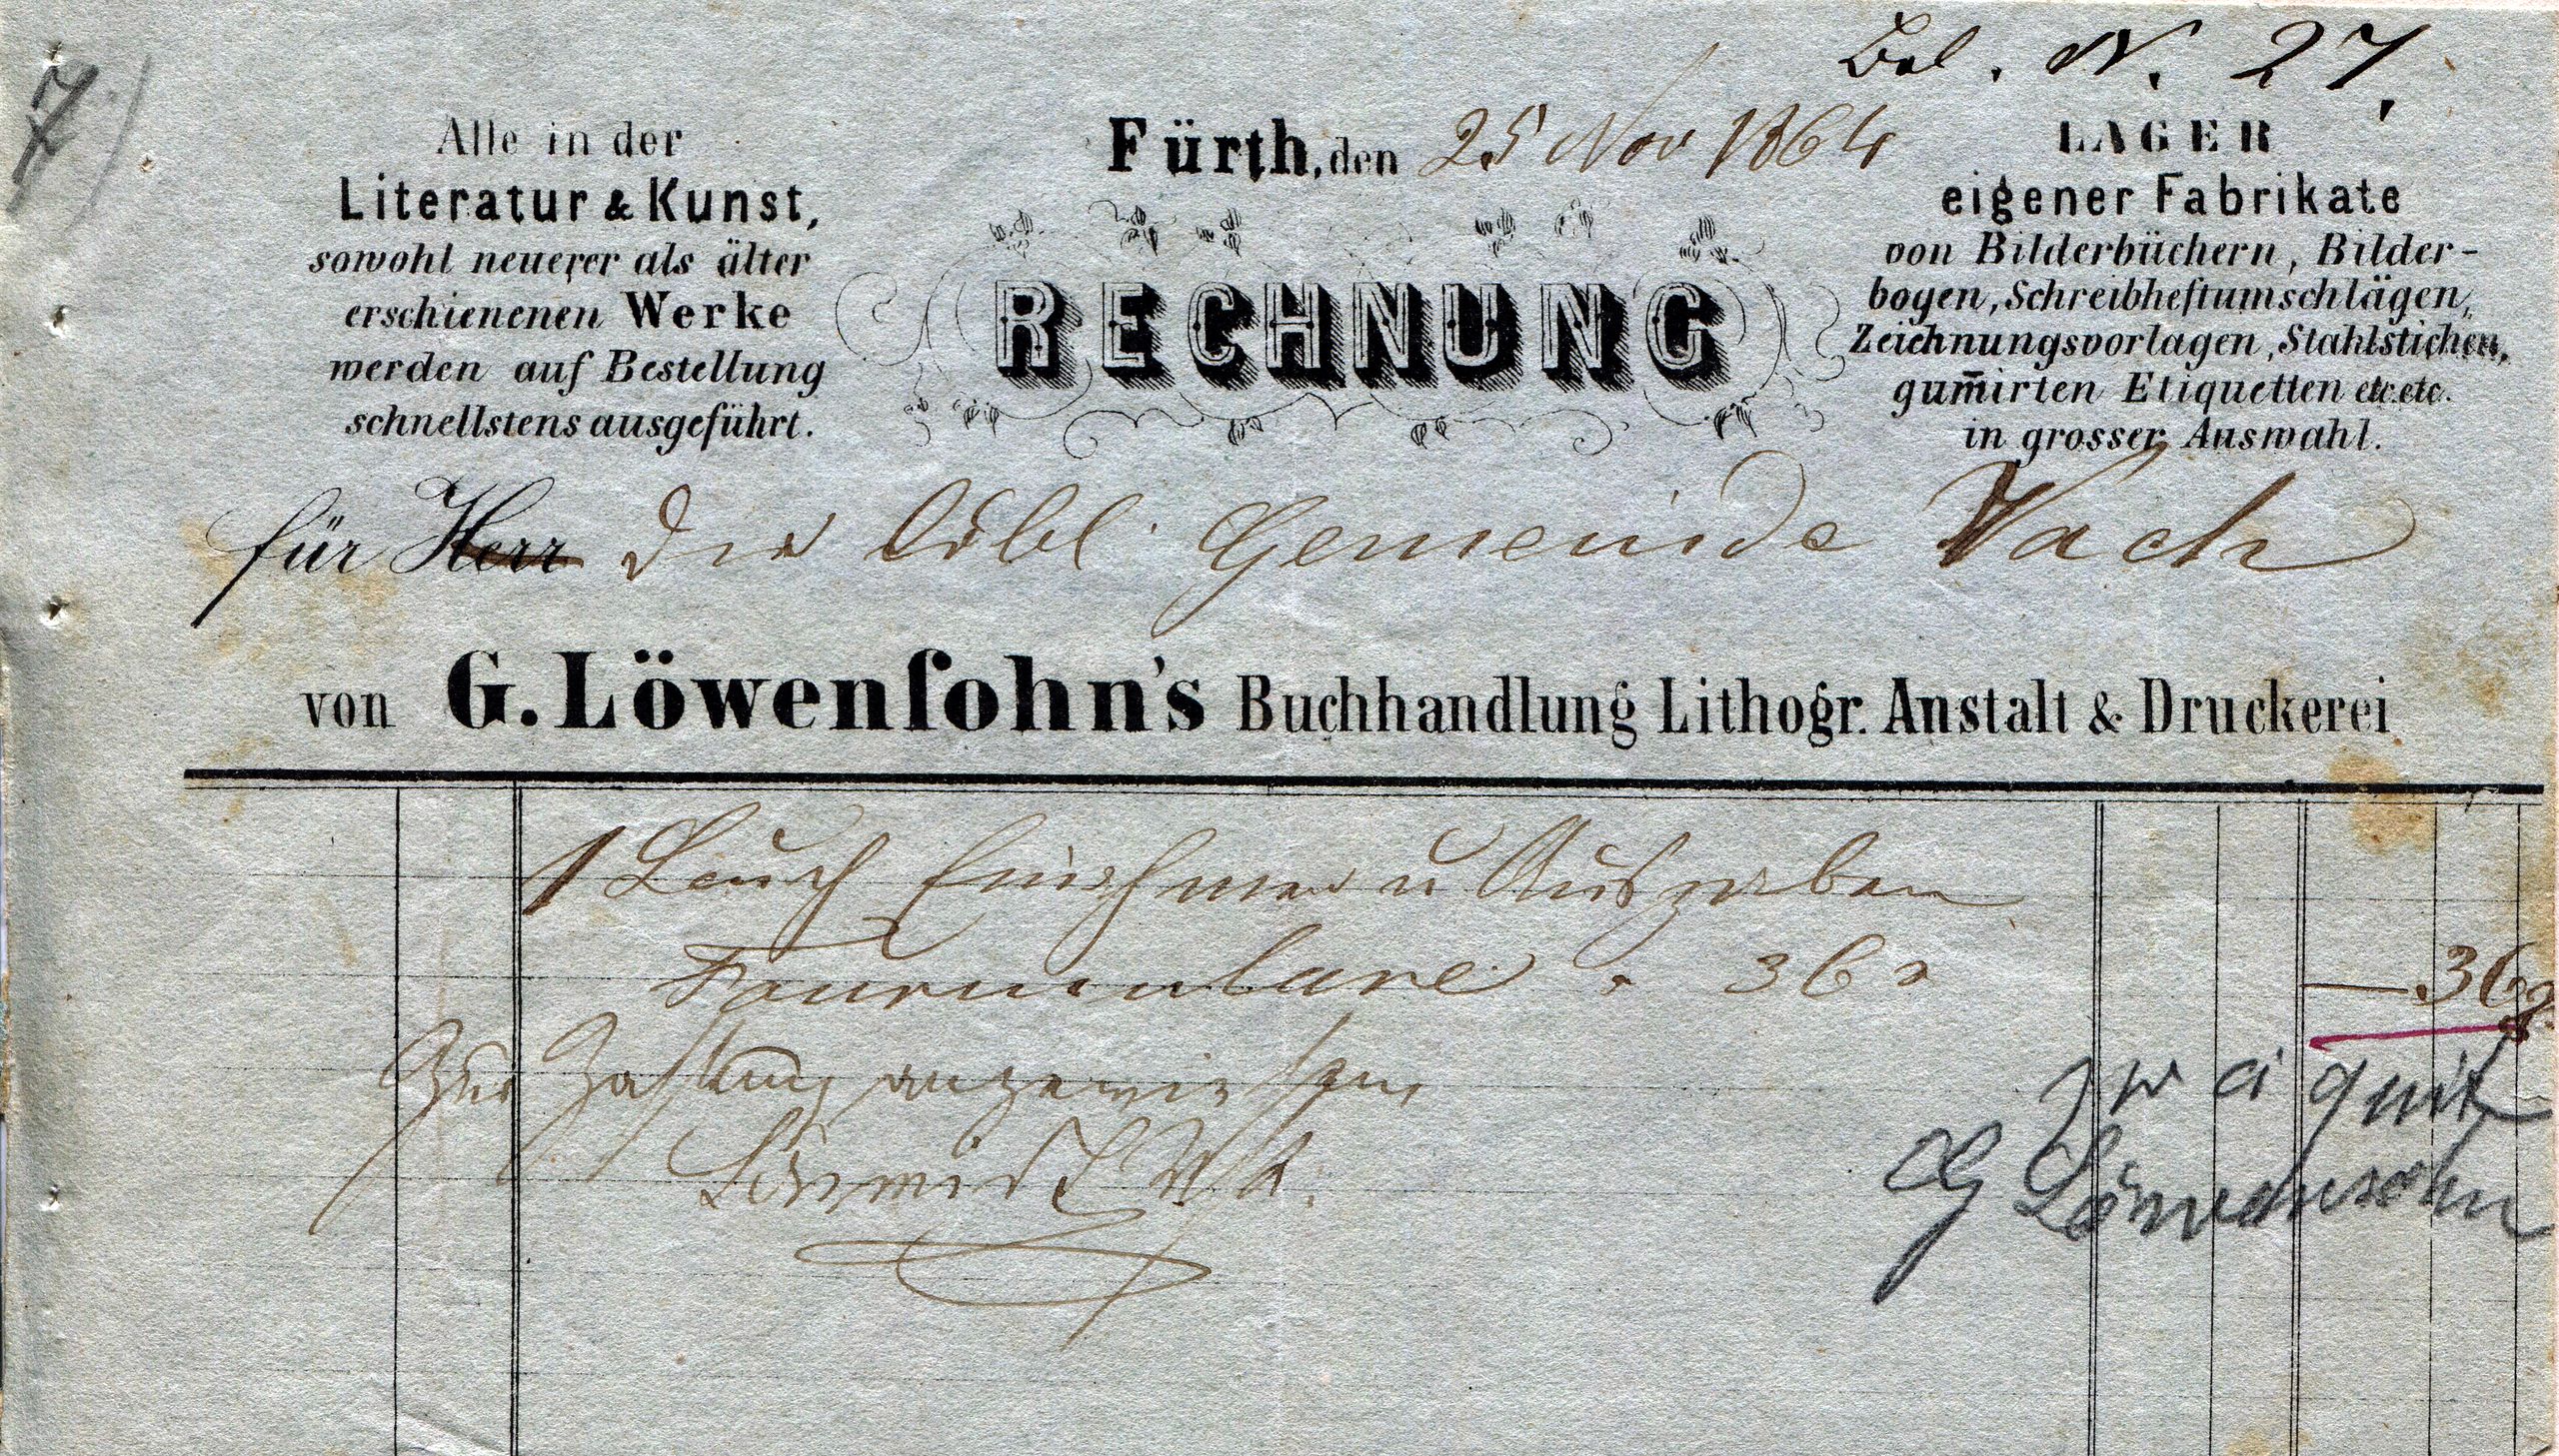 7)
Bel. N. 27.
Alle in der
Literatur & Kunst,
sowohl neuerer als älter
erschienenen Werke
werden auf Bestellung
schnellstens ausgeführt.
Fürth, den 25 Nov 1864
RECHNUNG
LAGER
eigener Fabrikate
von Bilderbüchern, Bilder-
bogen, Schreibheftumschlägen,
Zeichnungsvorlagen, Stahlstichen,
gum̄irten Etiquetten etc. etc.
in grosser Auswahl.
für Herr die löbl. Gemeinde Vach
von G. Löwenſohn's Buchhandlung Lithogr. Anstalt & Druckerei
1 Buch Einnahme u Ausgaben
Formulare 36
— 36
Zur Zahlung angewiesen
quit
G Löwensohn